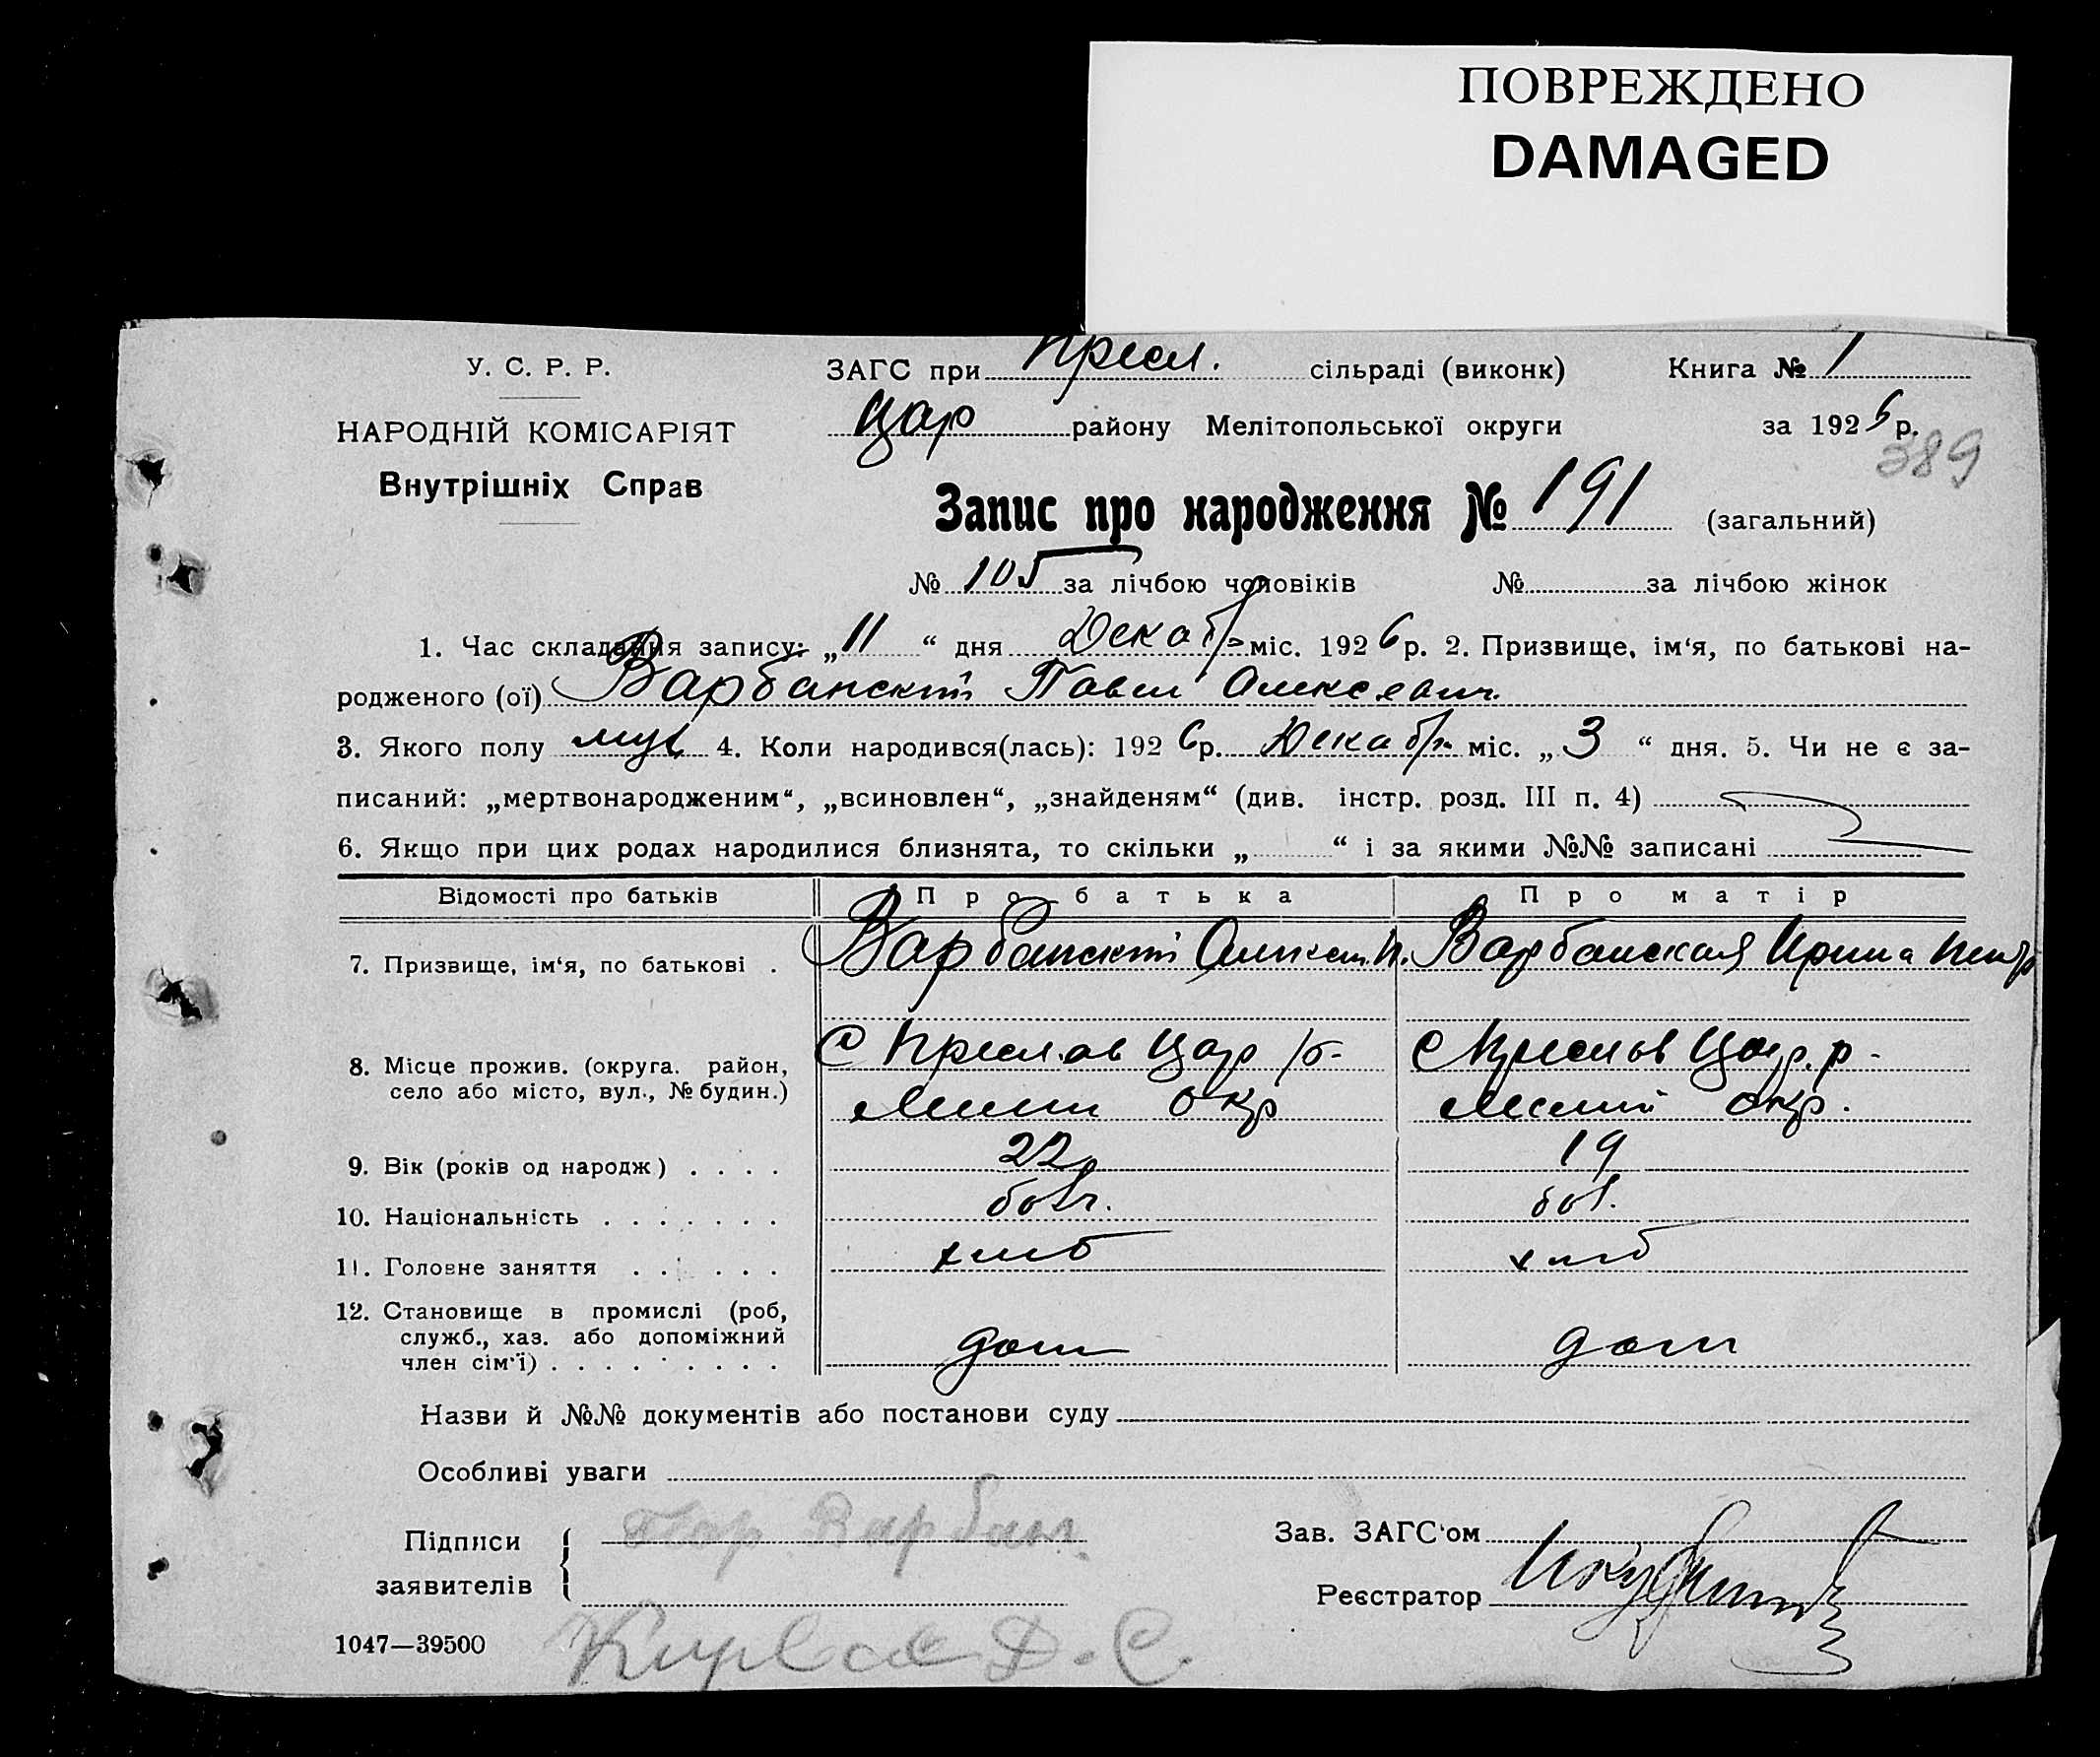 ПОВРЕЖДЕНО
DAMAGED
У. С. Р. Р.
НАРОДНІЙ КОМІСАРІЯТ
Внутрішніх Справ
ЗАГС при Пресл. сільраді (виконк) Книга № 1
Цар району Мелітопольської округи за 1926 р.
389
Запис про народження № 191 (загальний)
№ 105 за лічбою чоловіків № за лічбою жінок
1. Час складання запису: „11“ дня Декаб міс. 1926 р. 2. Призвище, ім‘я, по батькові на-
родженого (ої) Варбанский Павел Алексеевич.
3. Якого полу муж 4. Коли народився(лась): 1926 р. Декабр міс. „3“ дня. 5. Чи не є за-
писаний: „мертвонародженим“, „всиновлен“, „знайденям“ (див. інстр. розд. III п. 4)
6. Якщо при цих родах народилися близнята, то скільки „ “ і за якими №№ записані
Відомості про батьків Про батька Про матір
7. Призвище, ім‘я, по батькові . Варбанский Алексей П. Варбанская Ирина Петр
8. Місце прожив. (округа. район, с Преслав Цар р- с Преслав Цар. р-
село або місто, вул., № будин.) Мелит окр Мелит окр.
9. Вік (років од народж) . . . . 22 19
10. Національність . . . . . . . болг. бол.
11. Головне заняття . . . . . . хлеб хлеб
12. Становище в промислі (роб,
служб., хаз. або допоміжний
член сім‘ї) . . . . . . . . . . дом дом
Назви й №№ документів або постанови суду
Особливі уваги
Підписи Варбан. Зав. ЗАГС‘ом
заявителів Реєстратор
1047—39500 Д. С.